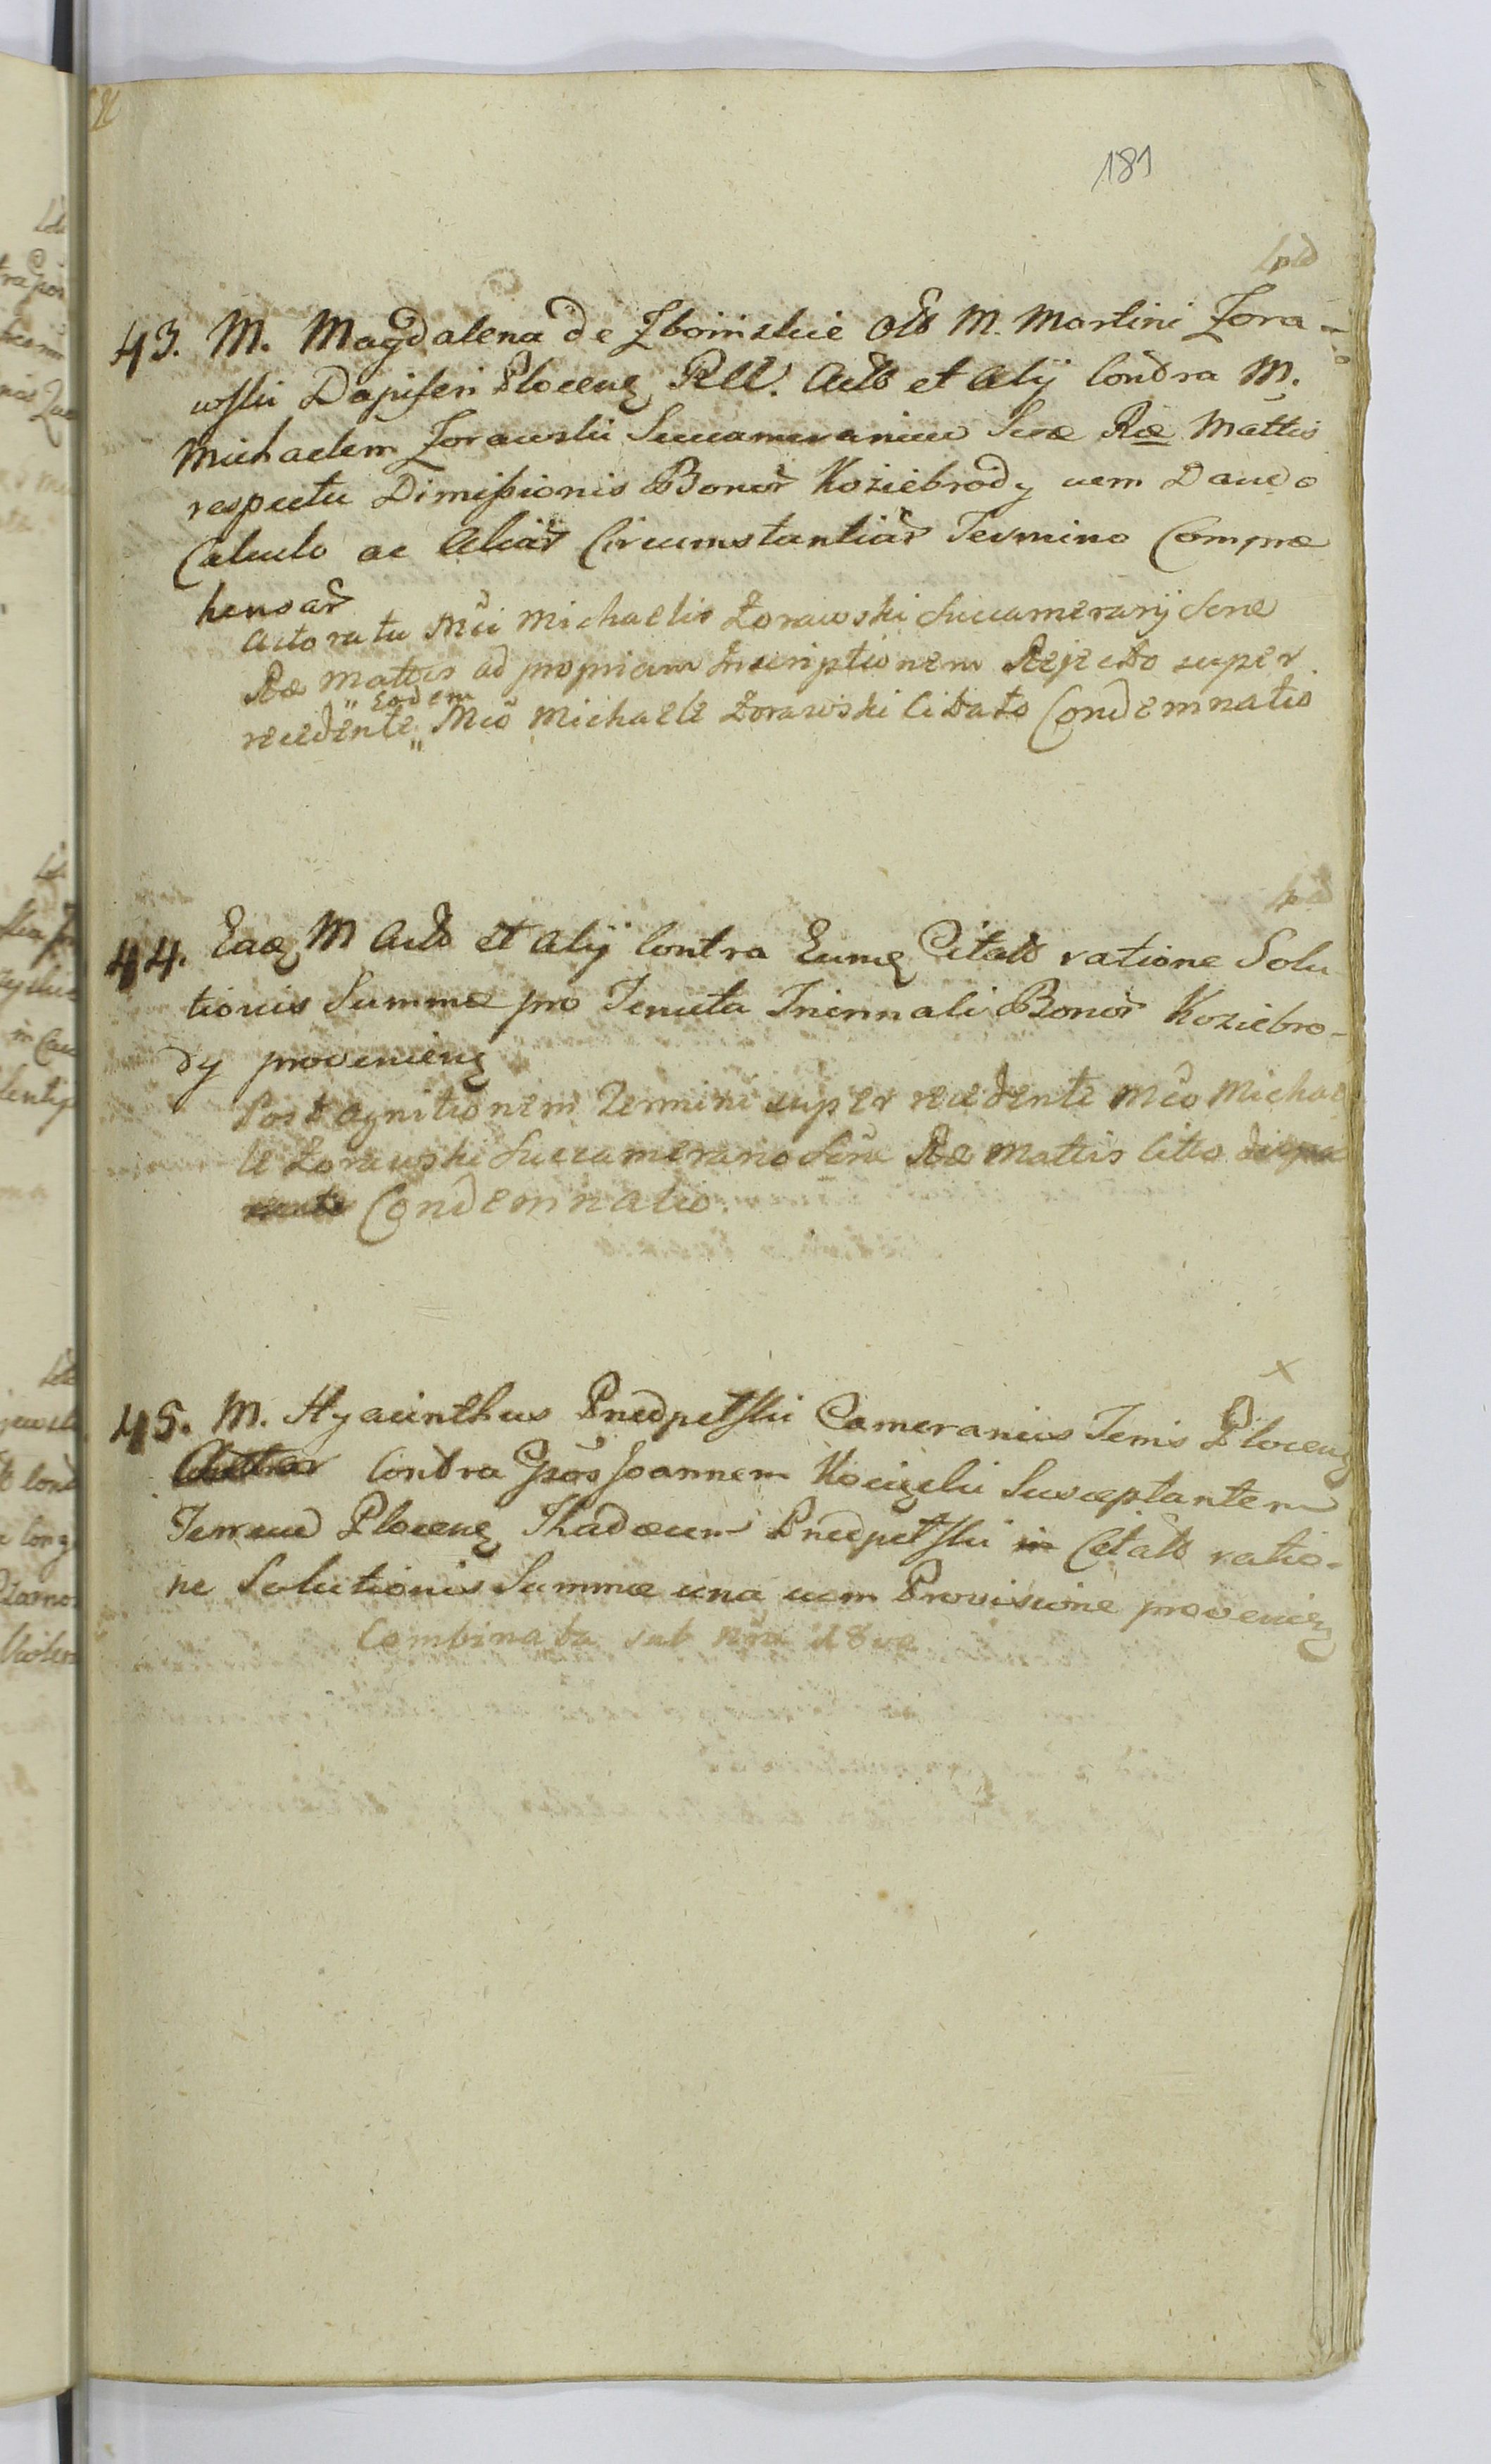 181
43. M. Magdalena de Zboinskie Olb M. Martini Zora-
wski Dapiferi Plocen Rell. Actb et Alij Contra M.
Michaelem Zorawski Succamerarium Seræ Ræ Mattis
respectu Dimissionis Bonor Koziebrody cum Dando
Calculo ac Aliar Circumstantiar Termino Compræ
hensar
Actoratu Mci Michaelis Zorawski Succamerarij Sene
Ræ Mattis ad propriam Inscriptionem Rejecto super
" Eodem
recedente " Mco Michaele Zorawski Citato Condemnatio
44. Eaq M Actb et Alij Contra Eumq Citatb ratione Solu
tionis Summæ pro Tenuta Triennali Bonor Koziebro-
dy provenienq
Post agnitionem Termini super recedente Mco Michae
le Zorawski Succamerario Sene Ræ Mattis Citto
Condemnatio.
x
45. M. Hyacinthus Przedpetski Camerarius Terris Plocen
Contra Gsos Joannem Susceptantem
Terrarum Plocen Thadæum Przedpetski Citatb ratio-
ne Solutionis Summæ una cum Provisione provenien
Combinata sub nro 18vo